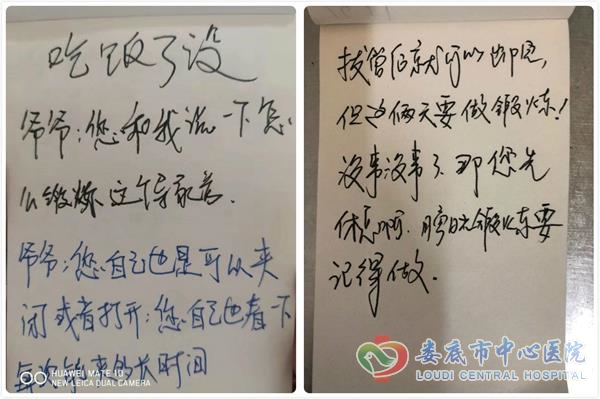 吃饭了没
爷爷:您和我说一下怎
么锻炼这个导尿管.
爷爷:您自己也是可以夹
闭或者打开:您自己也看一下
每次夹的多长时间
HUAWEI MATE 10
NEW LEICA DUAL CAMERA
拔管后就可以出院,
但这俩天要做锻炼!
没事没事了那您先
休息啊.明日锻炼要
记得做.
娄底市中心医院
LOUDI CENTRAL HOSPITAL